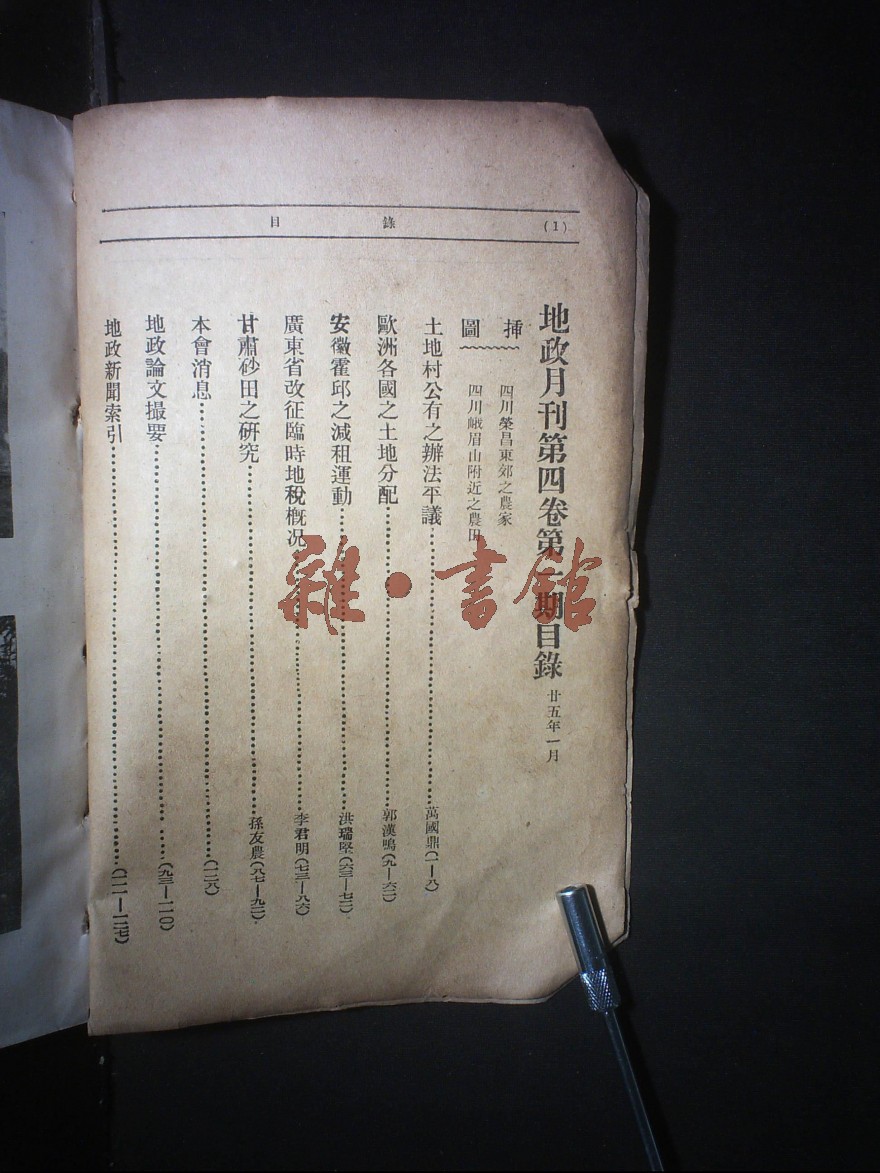 目錄
(1)
地政月刊第四卷第一期目錄 廿五年一月
插圖
四川榮昌東郊之農家
四川峨眉山附近之農田
土地村公有之辦法平議 萬國鼎(一—八)
歐洲各國之土地分配 郭漢鳴(九—六二)
安徽霍邱之減租運動 洪瑞堅(六三—七二)
廣東省改征臨時地稅概況 李君明(七三—八六)
甘肅砂田之研究 孫友農(八七—九二)
本會消息 (一二八)
地政論文撮要 (九三—一一〇)
地政新聞索引 (一一一—一二七)
雜·書館